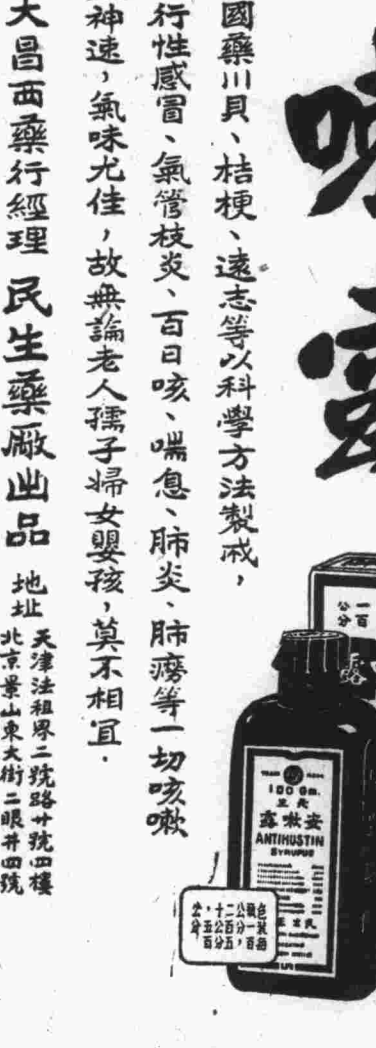 咳
靈
國藥川貝、桔梗、遠志等以科學方法製成，
行性感冒、氣管枝炎、百日咳、喘息、肺炎、肺癆等一切咳嗽
神速，氣味尤佳，故無論老人孺子婦女嬰孩，莫不相宜．
大昌西藥行經理 民生藥廠出品 地址
天津法租界二號路廿號四樓
北京景山東大街二眼井四號
一百
公分
露
TRADE MARK
100 Gm.
露嗽安
ANTIHUSTIN
SYRUPUS
民生
每
瓶一百
公分，
二百五
十公分
，五百
公分